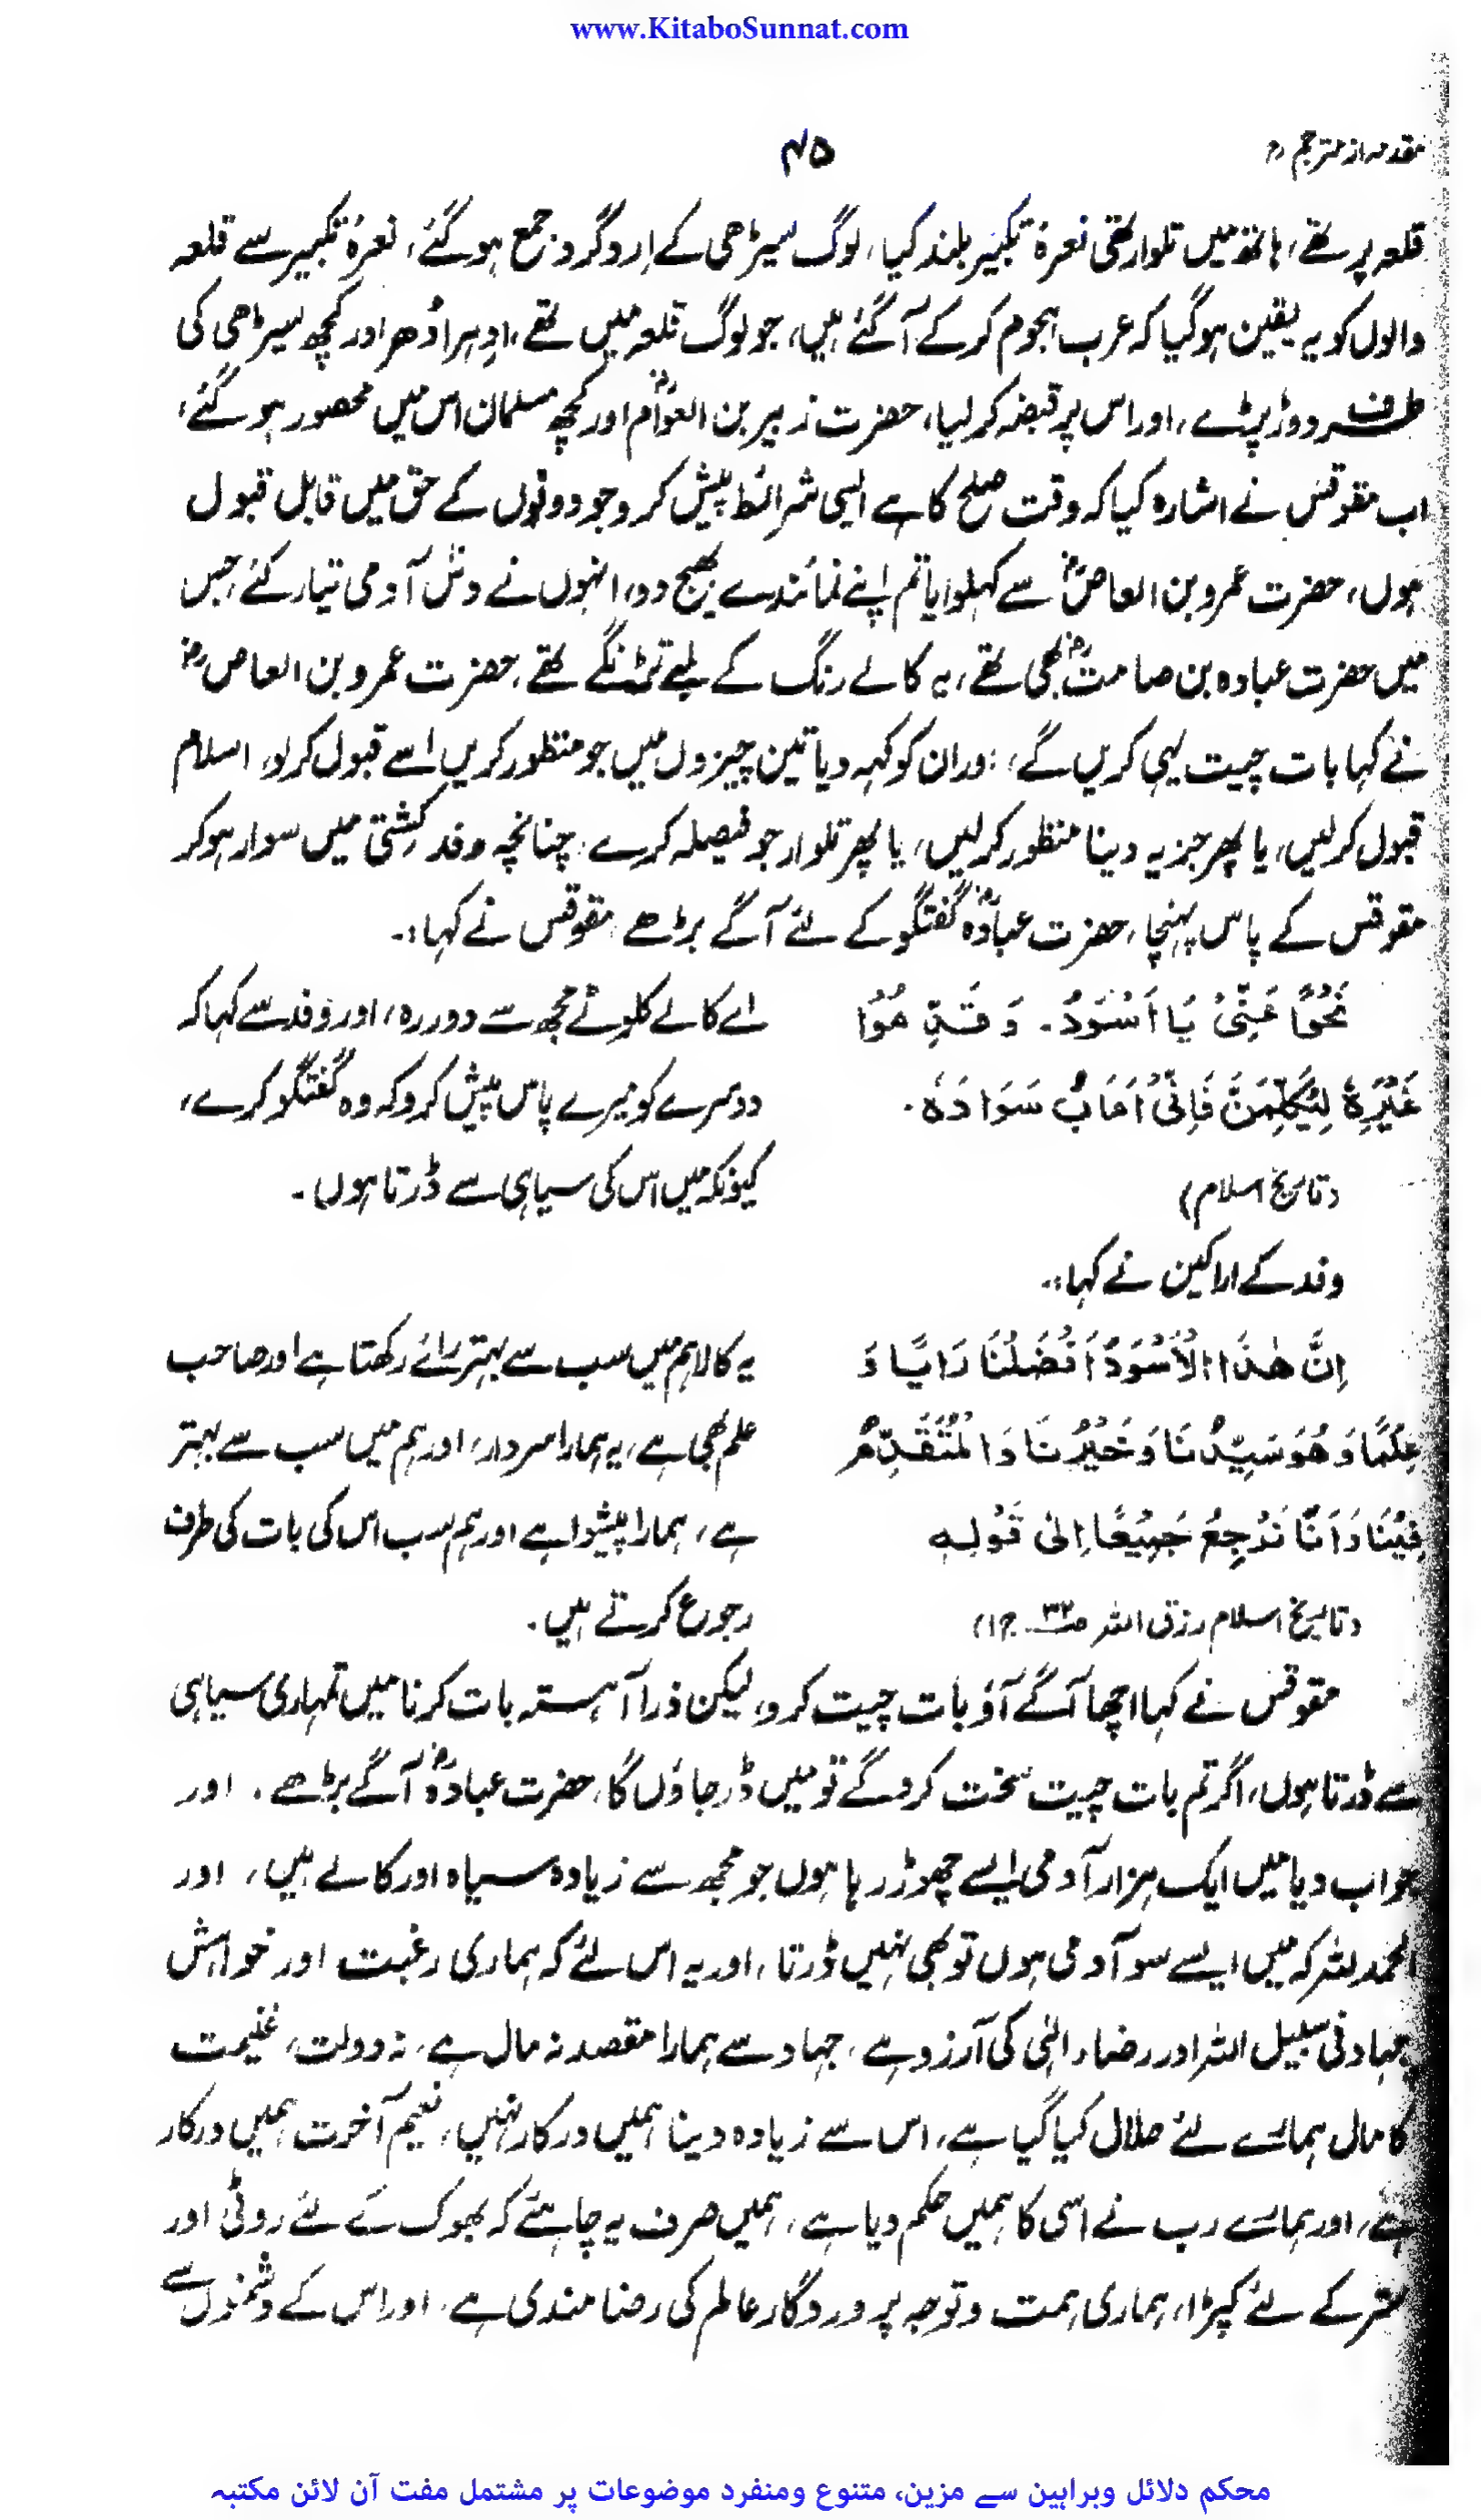 www.KitaboSunnat.com
مقدمہ از مترجم
۴۵
قلعہ پر تھے، ہاتھ میں تلوار تھی نعرۂ تکبیر بلند کیا، لوگ سیڑھی کے ارد گرد جمع ہو گئے، نعرۂ تکبیر سے قلعہ
والوں کو یہ یقین ہو گیا کہ عرب ہجوم کر کے آ گئے ہیں، جو لوگ قلعہ میں تھے، ادہر ادھر اور کچھ سیڑھی کی
طرف دوڑ پڑے، اور اس پر قبضہ کر لیا، حضرت زبیر بن العوامؓ اور کچھ مسلمان اس میں محصور ہو گئے،
اب مقوقس نے اشارہ کیا کہ وقت صلح کا ہے ایسی شرائط پیش کرو جو دونوں کے حق میں قابل قبول
ہوں، حضرت عمرو بن العاصؓ سے کہلوایا تم اپنے نمائندے بھیج دو، انہوں نے دس آدمی تیار کئے، جس
میں حضرت عبادہ بن صامتؓ بھی تھے، یہ کالے رنگ کے لمبے تڑنگے تھے، حضرت عمرو بن العاصؓ
نے کہا بات چیت یہی کریں گے، اور ان کو کہہ دیا تین چیزوں میں جو منظور کریں اسے قبول کر لو، اسلام
قبول کر لیں، یا پھر جزیہ دینا منظور کر لیں، یا پھر تلوار جو فیصلہ کرے، چنانچہ وفد کشتی میں سوار ہو کر
مقوقس کے پاس پہنچا، حضرت عبادہؓ گفتگو کے لئے آگے بڑھے، مقوقس نے کہا:۔
نَحُّوْا عَنِّیْ یَا اَسْوَدُ۔ وَ قَدِّمُوْا
اے کالے کلوٹے مجھ سے دور رہ، اور وفد سے کہا کہ
غَیْرَہٗ لِیُکَلِّمَنَّ فَاِنِّیْ اَھَابُ سَوَادَہٗ۔
دوسرے کو میرے پاس پیش کرو کہ وہ گفتگو کرے،
(تاریخ اسلام)
کیونکہ میں اس کی سیاہی سے ڈرتا ہوں۔
وفد کے اراکین نے کہا:۔
اِنَّ ھٰذَا الْاَسْوَدَ اَفْضَلُنَا رَایًا وَ
یہ کالا ہم میں سب سے بہتر رائے رکھتا ہے اور صاحب
عِلْمًا وَ ھُوَ سَیِّدُنَا وَ خَیْرُنَا وَ الْمُتَقَدِّمُ
علم بھی ہے، یہ ہمارا سردار، اور ہم میں سب سے بہتر
فِیْنَا وَ اَنَّا نَرْجِعُ جَمِیْعًا اِلٰی قَوْلِہٖ
ہے، ہمارا پیشوا ہے اور ہم سب اس کی بات کی طرف
(تاریخ اسلام رزق اللہ ص۳۲ ج۱)
رجوع کرتے ہیں۔
مقوقس نے کہا اچھا آگے آؤ بات چیت کرو، لیکن ذرا آہستہ بات کرنا میں تمہاری سیاہی
سے ڈرتا ہوں، اگر تم بات چیت سخت کرو گے تو میں ڈر جاؤں گا، حضرت عبادہؓ آگے بڑھے، اور
جواب دیا میں ایک ہزار آدمی ایسے چھوڑ رہا ہوں جو مجھ سے زیادہ سیاہ اور کالے ہیں، اور
الحمد للہ کہ میں ایسے سو آدمی ہوں تو بھی نہیں ڈرتا، اور یہ اس لئے کہ ہماری رغبت اور خواہش
جہاد فی سبیل اللہ اور رضاء الٰہی کی آرزو ہے، جہاد سے ہمارا مقصد نہ مال ہے، نہ دولت، غنیمت
کا مال ہمارے لئے حلال کیا گیا ہے، اس سے زیادہ دینا ہمیں درکار نہیں، نعیم آخرت ہمیں درکار
ہے، اور ہمارے رب نے اسی کا ہمیں حکم دیا ہے، ہمیں صرف یہ چاہئے کہ بھوک کے لئے روٹی اور
ستر کے لئے کپڑا، ہماری ہمت و توجہ پروردگار عالم کی رضا مندی ہے، اور اس کے دشمنوں سے
محکم دلائل وبراہین سے مزین، متنوع ومنفرد موضوعات پر مشتمل مفت آن لائن مکتبہ